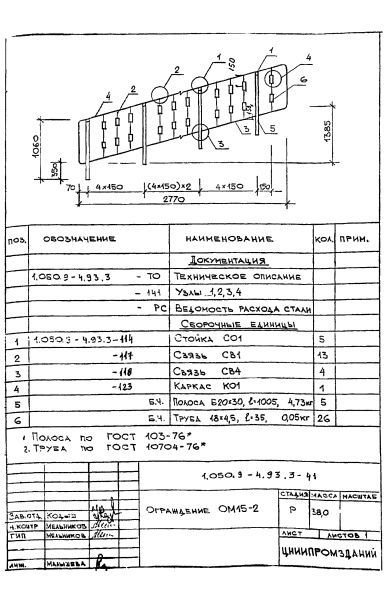 1
150
4
2
1
2
4
6
150
3
3
5
1060
350
1385
70
4×150
(4×150)×2
4×150
150
2770
ПОЗ. ОБОЗНАЧЕНИЕ НАИМЕНОВАНИЕ КОЛ. ПРИМ.
ДОКУМЕНТАЦИЯ
1.050.9-4.93.3 - ТО ТЕХНИЧЕСКОЕ ОПИСАНИЕ
- 141 УЗЛЫ 1,2,3,4
- РС ВЕДОМОСТЬ РАСХОДА СТАЛИ
СБОРОЧНЫЕ ЕДИНИЦЫ
1 1.050.9-4.93.3-114 СТОЙКА СО1 5
2 -117 СВЯЗЬ СВ1 13
3 -118 СВЯЗЬ СВ4 4
4 -123 КАРКАС КО1 1
5 Б.Ч. ПОЛОСА Б20×30, ℓ=1005, 4,73кг 5
6 Б.Ч. ТРУБА 18×4,5, ℓ=35, 0,05кг 26
1 ПОЛОСА ПО ГОСТ 103-76*
2. ТРУБА ПО ГОСТ 10704-76*
1.050.9-4.93.3-41
ОГРАЖДЕНИЕ ОМ15-2
СТАДИЯ МАССА МАСШТАБ
Р 38,0
ЗАВ.ОТД. ХОДЫШ
Н.КОНТР МЕЛЬНИКОВ
ГИП МЕЛЬНИКОВ
ЛИСТ ЛИСТОВ 1
ИНЖ. МАЛЫШЕВА
ЦНИИПРОМЗДАНИЙ